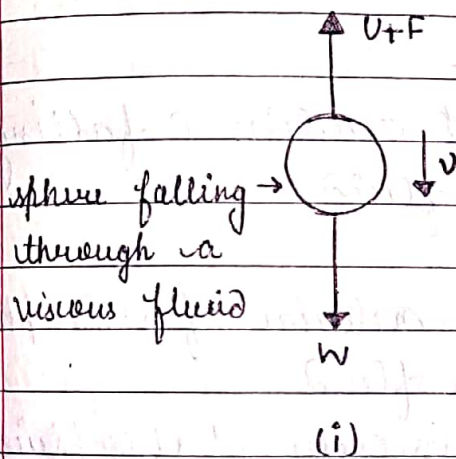 U+F
v
sphere falling →
through a
viscous fluid
W
(i)